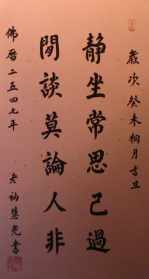 歲次癸未桐月吉旦
靜坐常思己過
閒談莫論人非
佛曆二五四七年
衲慧光書